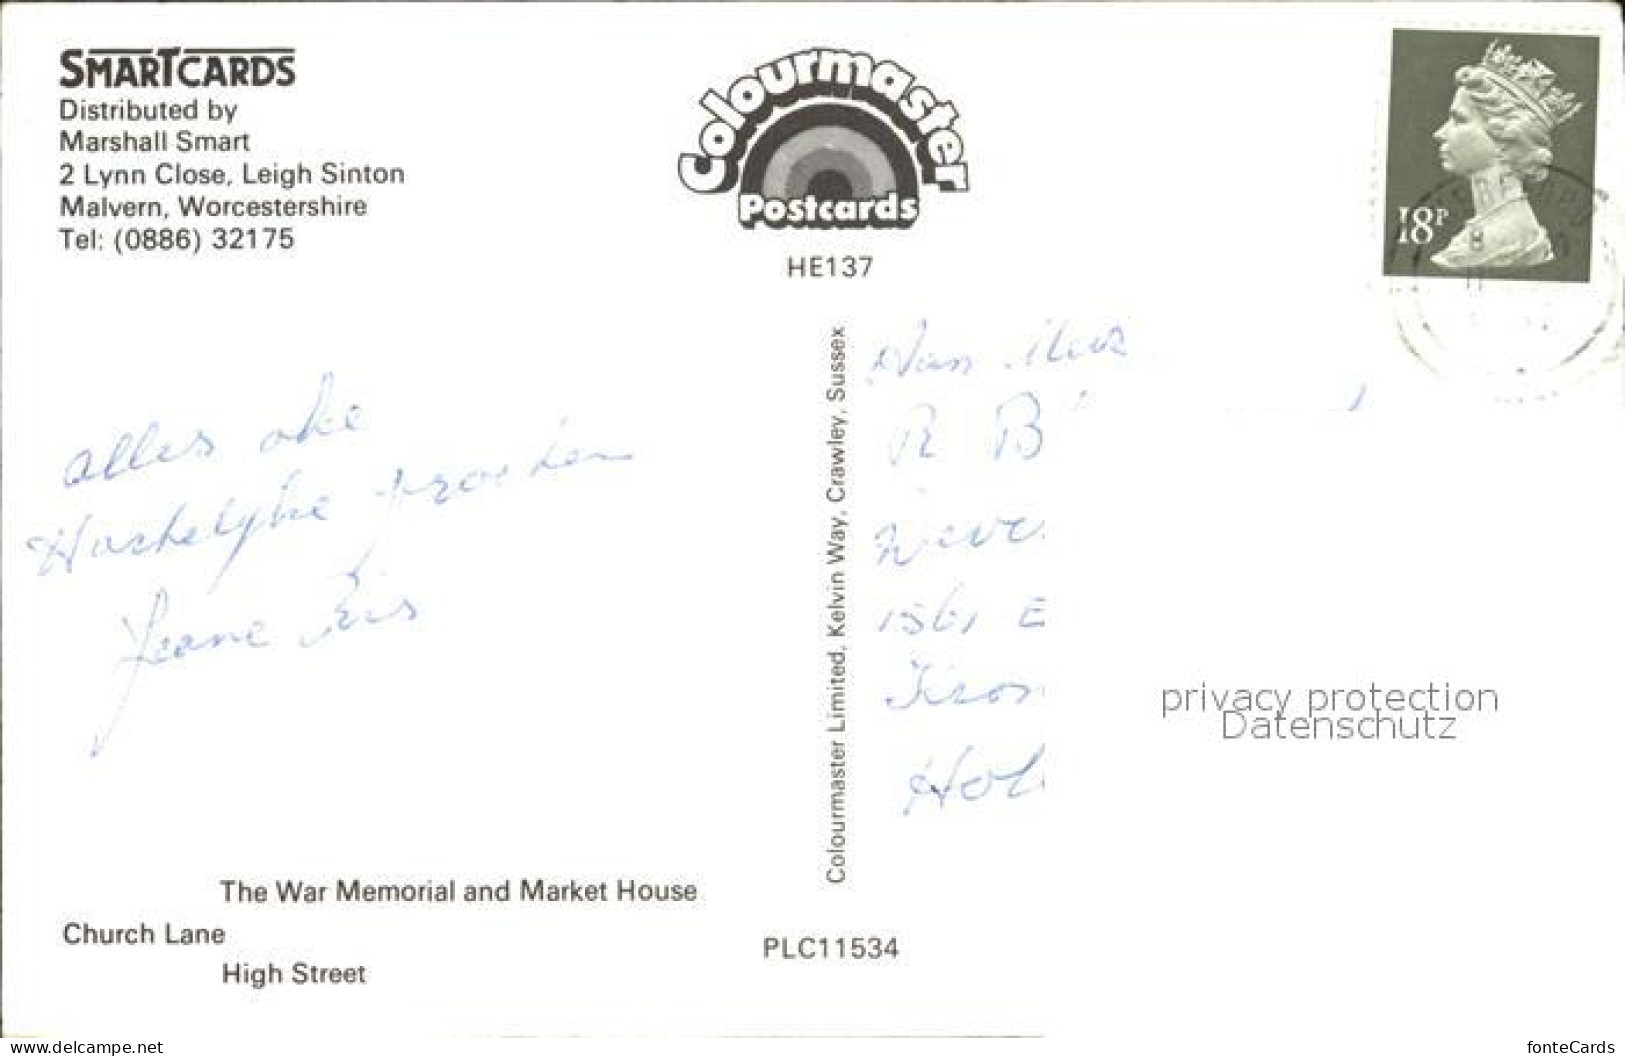 SMARTCARDS
Distributed by
Marshall Smart
2 Lynn Close, Leigh Sinton
Malvern, Worcestershire
Tel: (0886) 32175
Colourmaster
Postcards
HE137
18P
alles oke
Hartelyke groeten
Jeane
Colourmaster Limited, Kelvin Way, Crawley, Sussex
R B
1561 E
Hol
privacy protection
Datenschutz
The War Memorial and Market House
Church Lane
High Street
PLC11534
www.delcampe.net
fonteCards